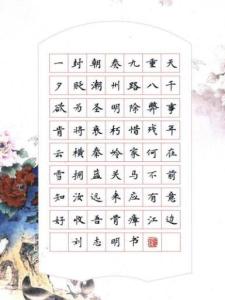 一封朝奏九重天
夕贬潮州路八千
欲为圣明除弊事
肯将衰朽惜残年
云横秦岭家何在
雪拥蓝关马不前
知汝远来应有意
好收吾骨瘴江边
刘志明书